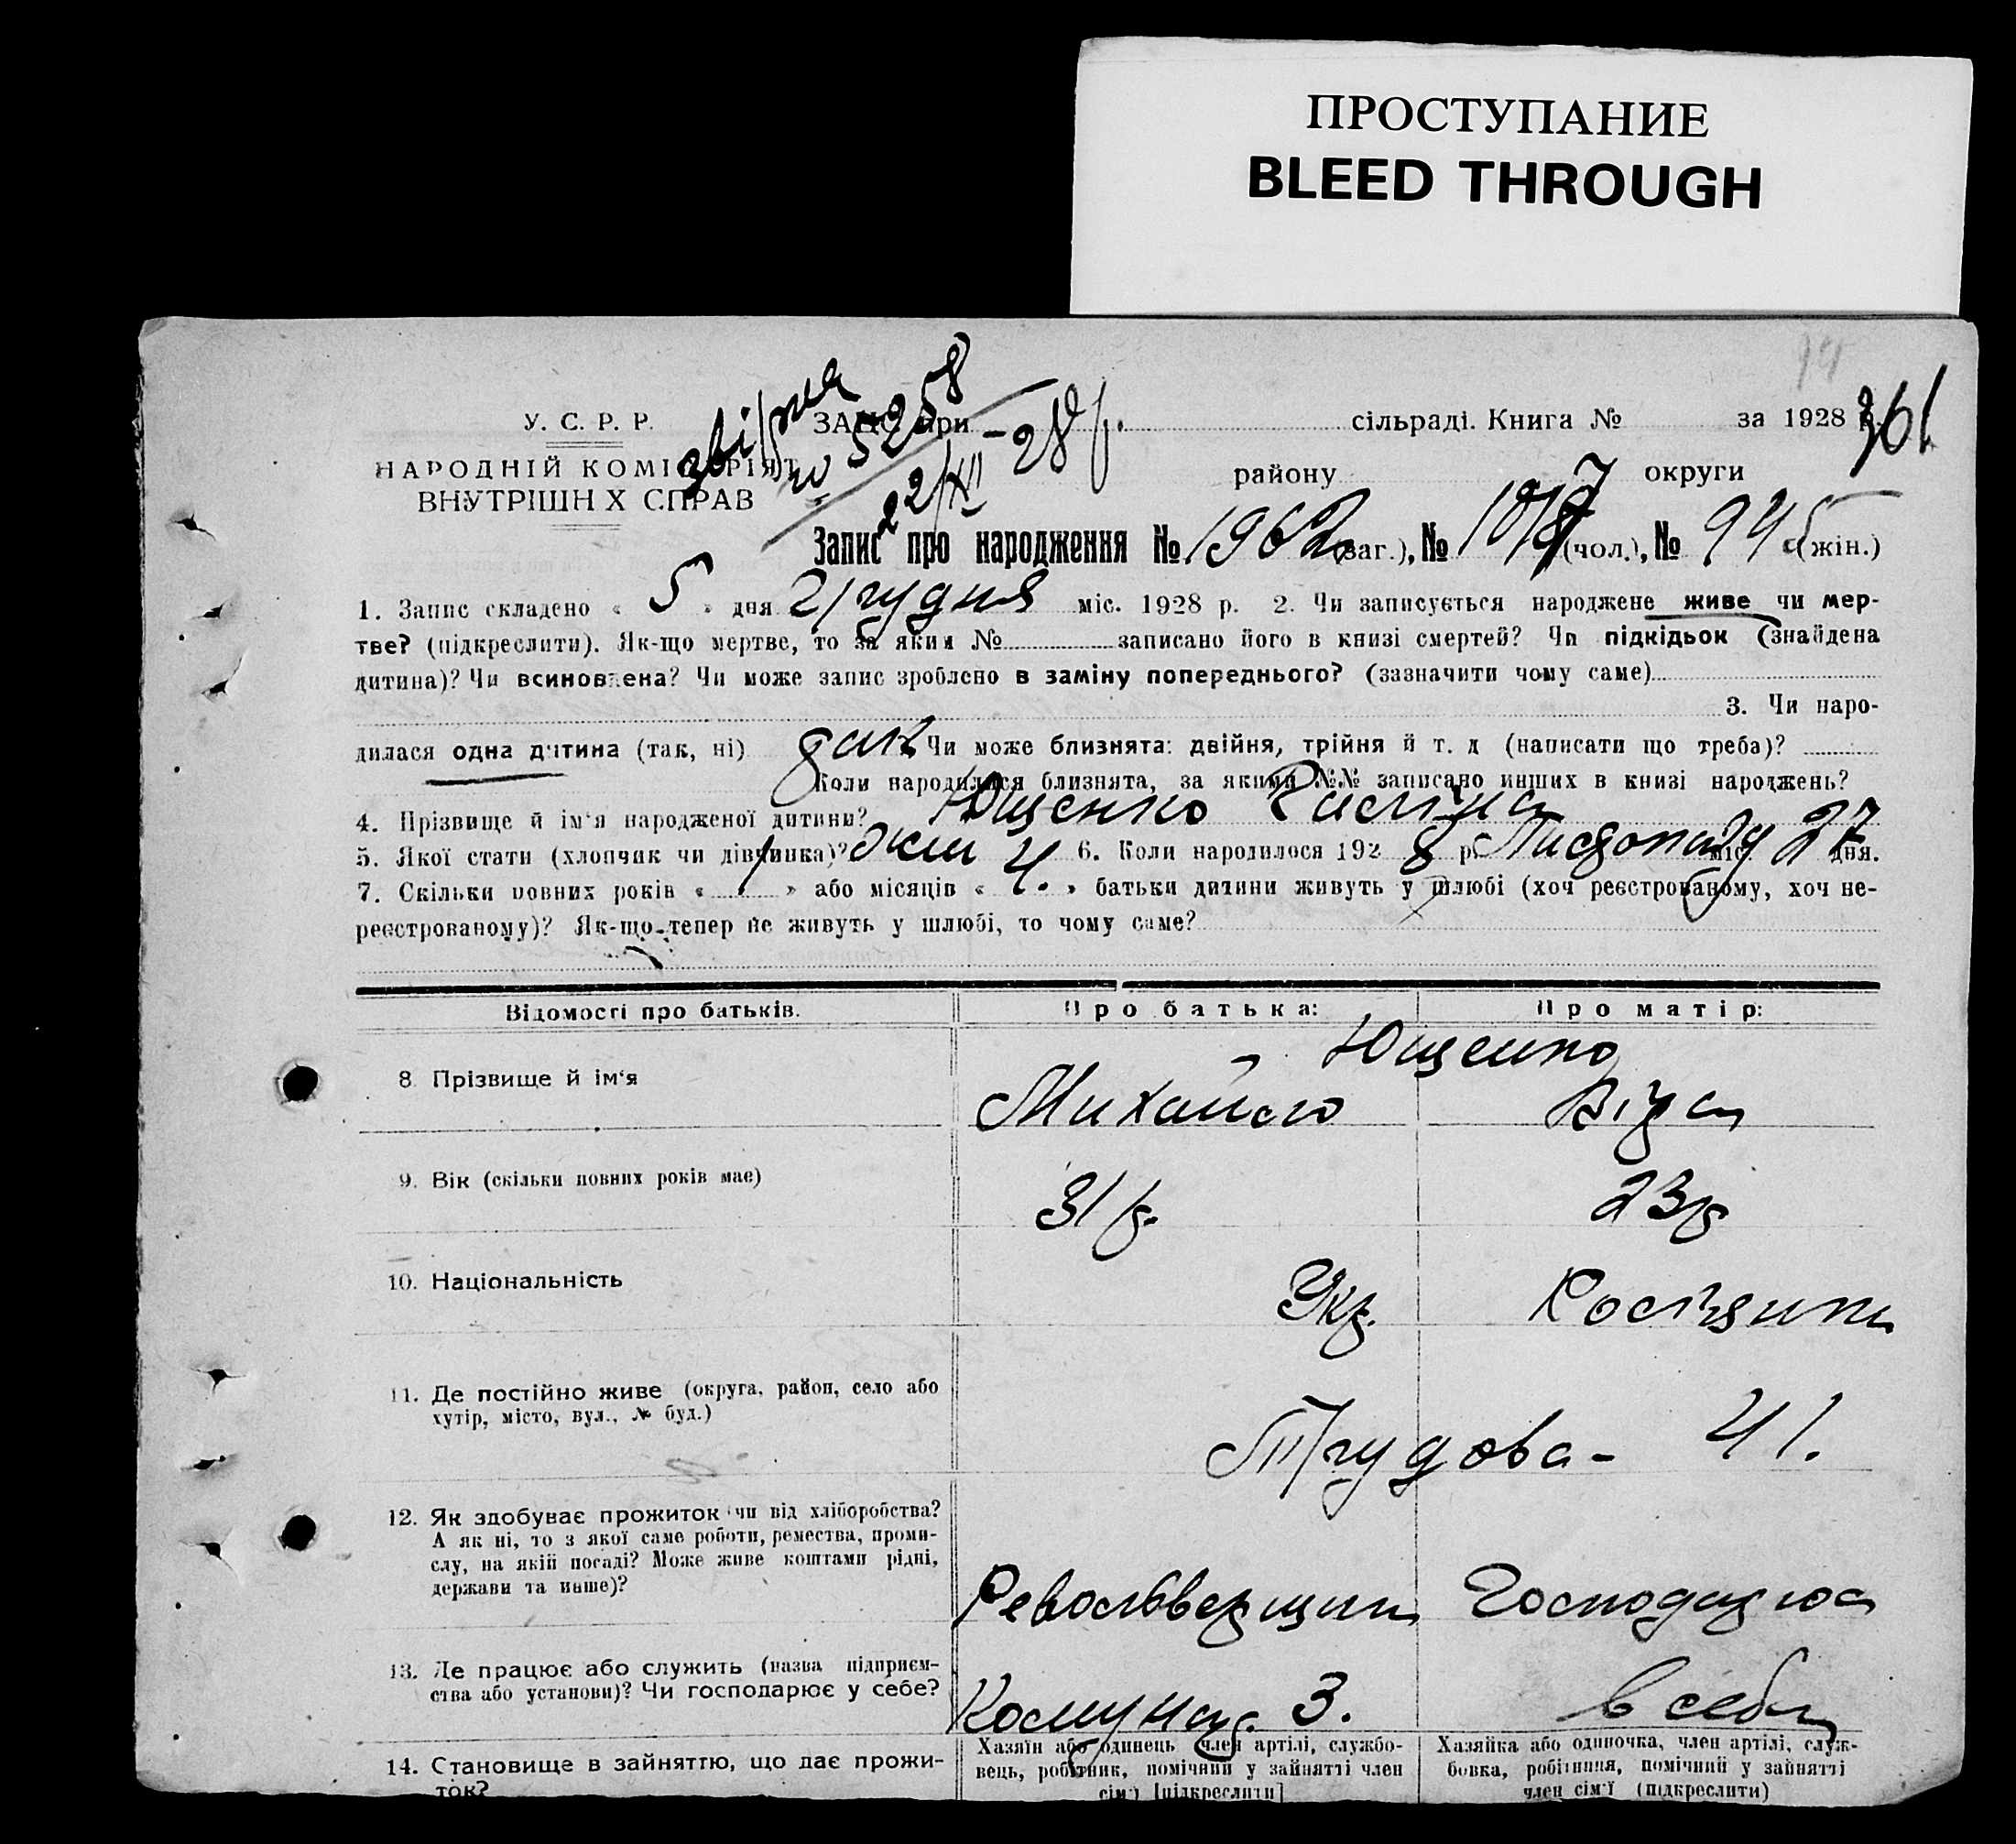 ПРОСТУПАНИЕ
BLEED THROUGH
361
У. С. Р. Р.
ЗАЦС при сільраді. Книга № за 1928 р.
№ 5258
22/XII - 28 р.
НАРОДНІЙ КОМІСАРІЯТ
ВНУТРІШНІХ СПРАВ
району округи
Запис про народження № 1962 (заг.), № 1017 (чол.), № 945 (жін.)
1. Запис складено « 5 » дня Грудня міс. 1928 р. 2. Чи записується народжене живе чи мер-
тве? (підкреслити). Як-що мертве, то за яким № записано його в книзі смертей? Чи підкідьок (знайдена
дитина)? Чи всиновлена? Чи може запис зроблено в заміну попереднього? (зазначити чому саме)
3. Чи наро-
дилася одна дитина (так, ні) Чи може близнята: двійня, трійня й т. д (написати що треба)?
Коли народилися близнята, за якими №№ записано инших в книзі народжень?
4. Прізвище й ім‘я народженої дитини? Ющенко
5. Якої стати (хлопчик чи дівчинка)? 6. Коли народилося 1928 р. Листопаду міс. 27 дня.
7. Скільки повних років « » або місяців « 4. » батьки дитини живуть у шлюбі (хоч реєстрованому, хоч не-
реєстрованому)? Як-що тепер не живуть у шлюбі, то чому саме?
Відомості про батьків. Про батька: Про матір:
Ющенко
8. Прізвище й ім‘я Михайло Віра
9. Вік (скільки повних років має) 31 р. 23 р
10. Національність Укр. Росіянка
11. Де постійно живе (округа, район, село або
хутір, місто, вул., № буд.) Трудова - 41.
12. Як здобуває прожиток чи від хліборобства?
А як ні, то з якої саме роботи, ремества, проми-
слу, на якій посаді? Може живе коштами рідні,
держави та инше)? Револьверщик Господарює
13. Де працює або служить (назва підприєм-
ства або установи)? Чи господарює у себе? Комунар. З. в себе
14. Становище в зайняттю, що дає прожи-
ток?
Хазяїн або одинець член артілі, службо-
вець, робітник, помічний у зайнятті член
сім‘ї [підкреслити]
Хазяйка або одиночка, член артілі, служ-
бовка, робітниця, помічний у зайнятті
член сім‘ї (підкреслити)